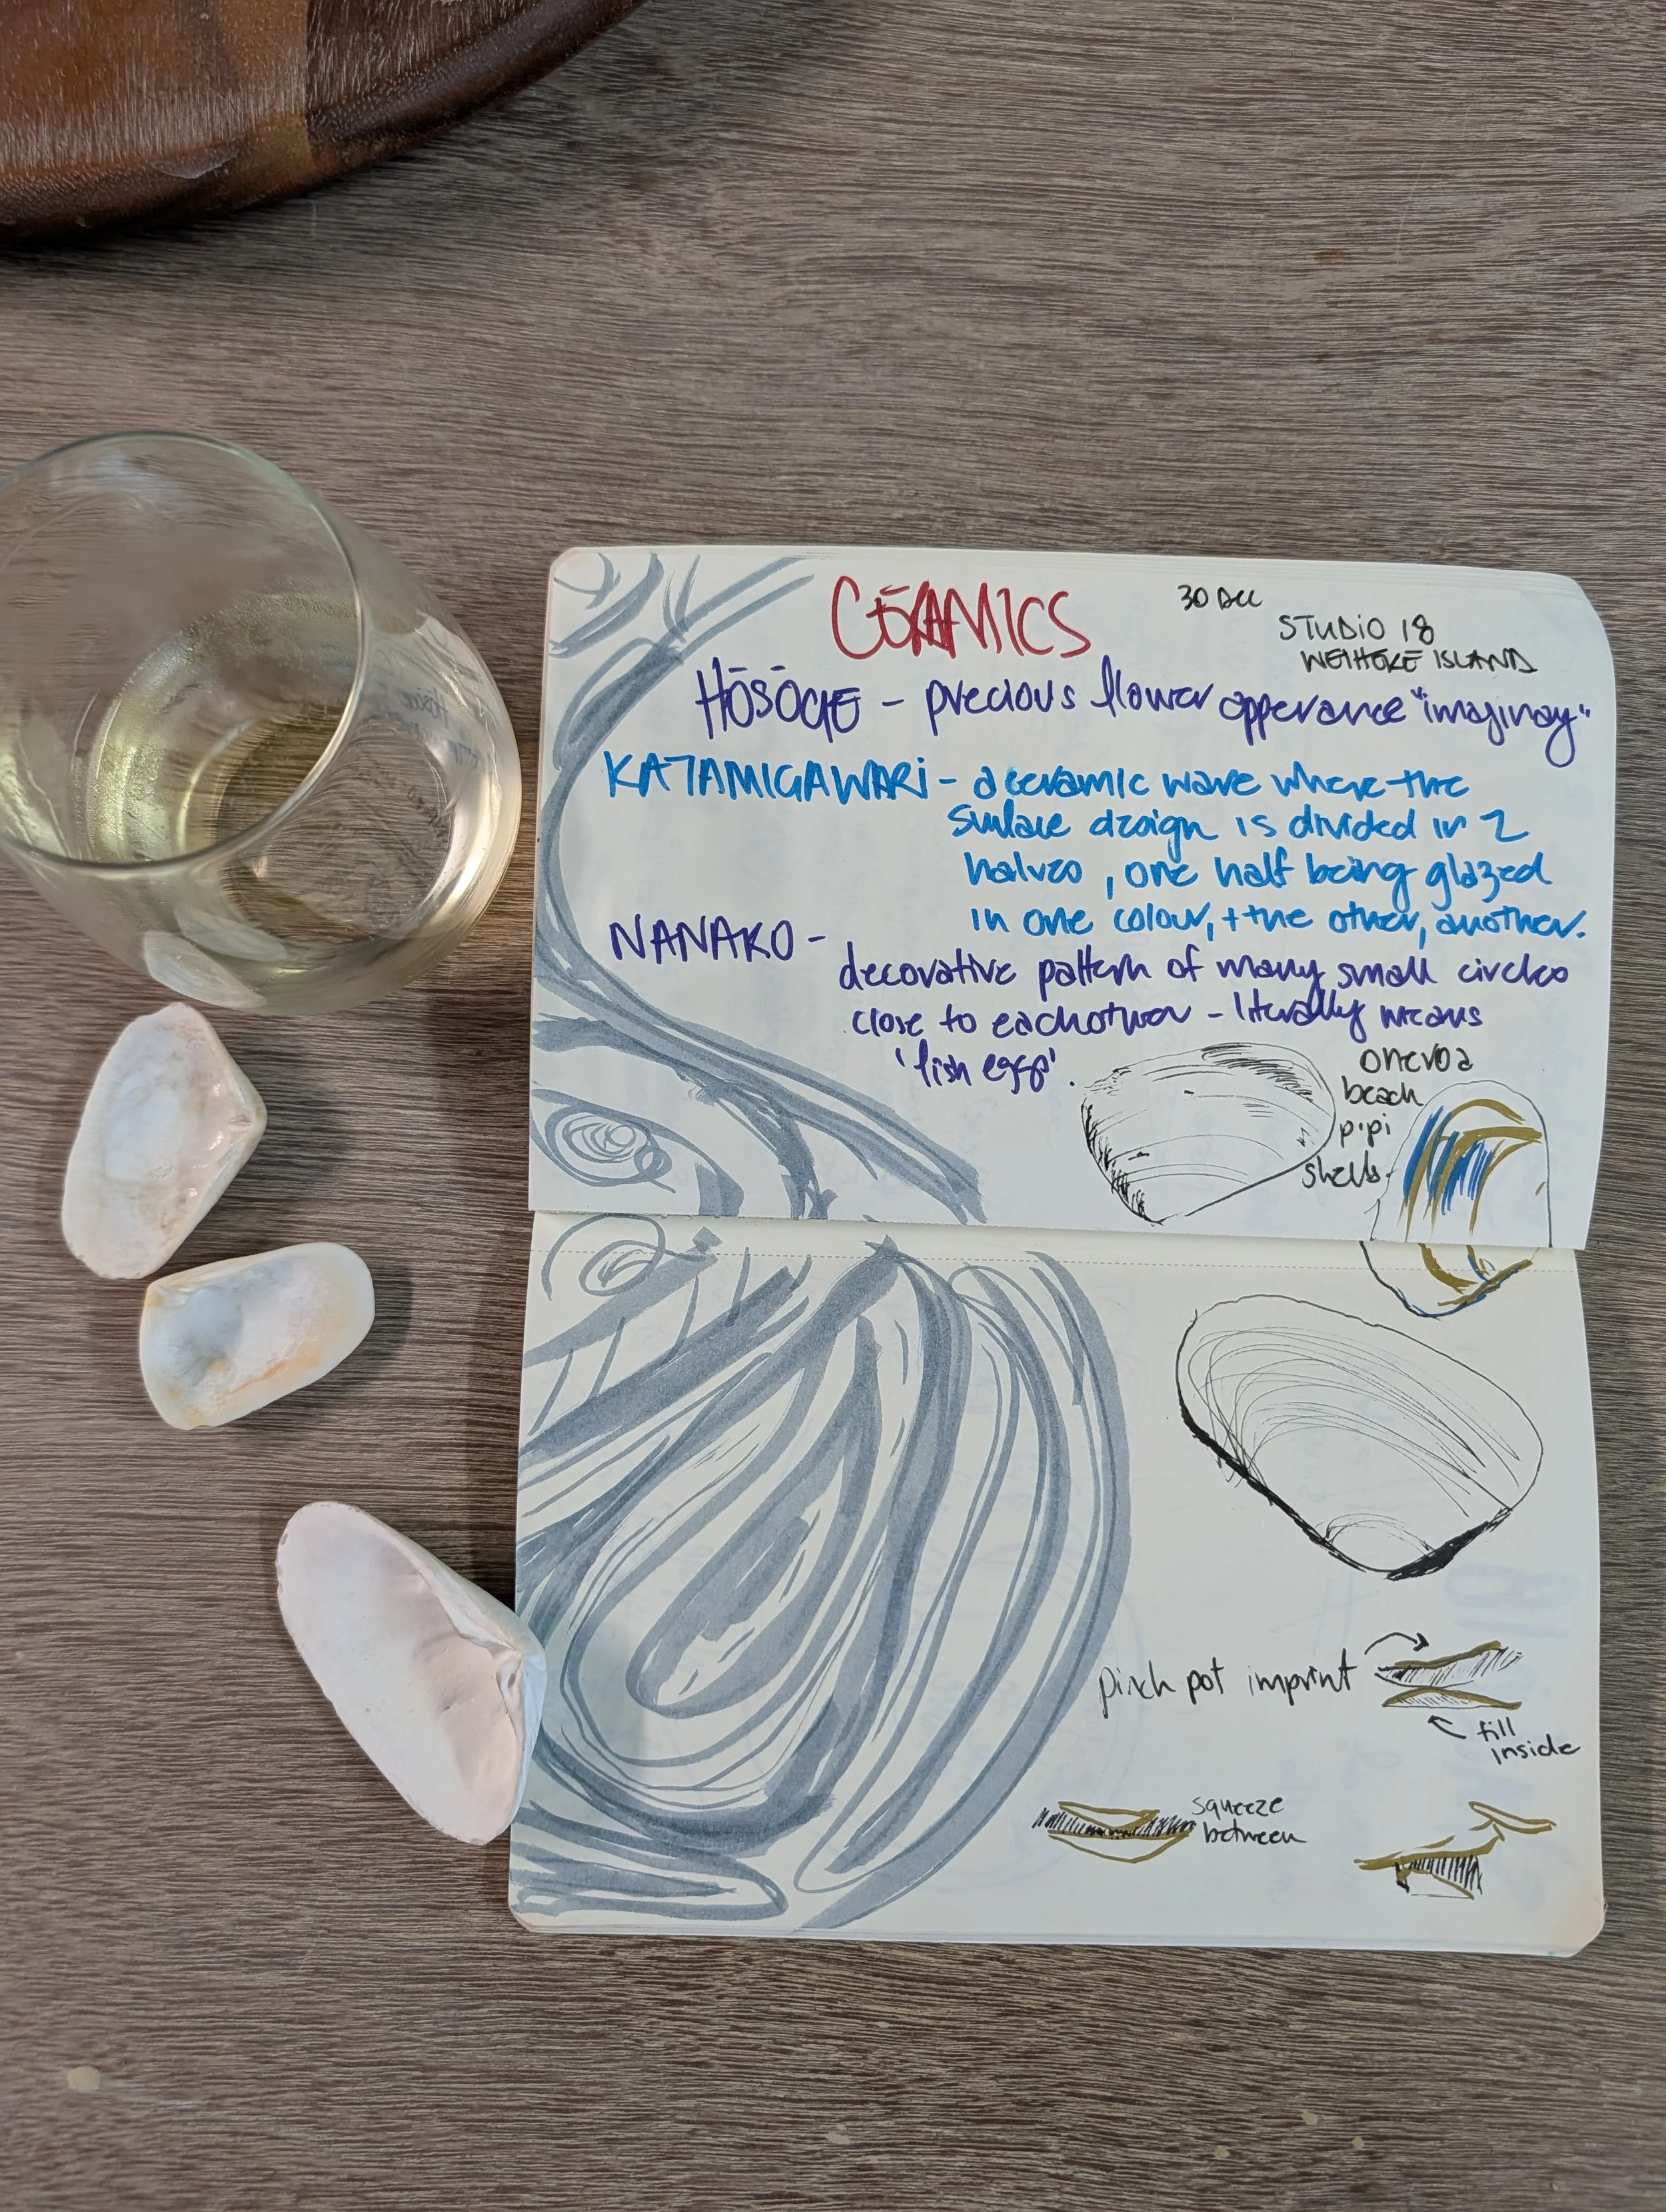 CERAMICS
30 DEC
STUDIO 18
WEIHEKE ISLAND
HŌSŌGE - precious flower apperance "imaginay"
KATAMIGAWARI - a ceramic ware where the
surface design is divided in 2
halves, one half being glazed
in one colour, + the other, another.
NANAKO -
decorative pattern of many small circles
close to eachother - literally means
'fish eggs'.
oneroa
beach
pipi
shells
pinch pot imprint
fill
inside
squeeze
between